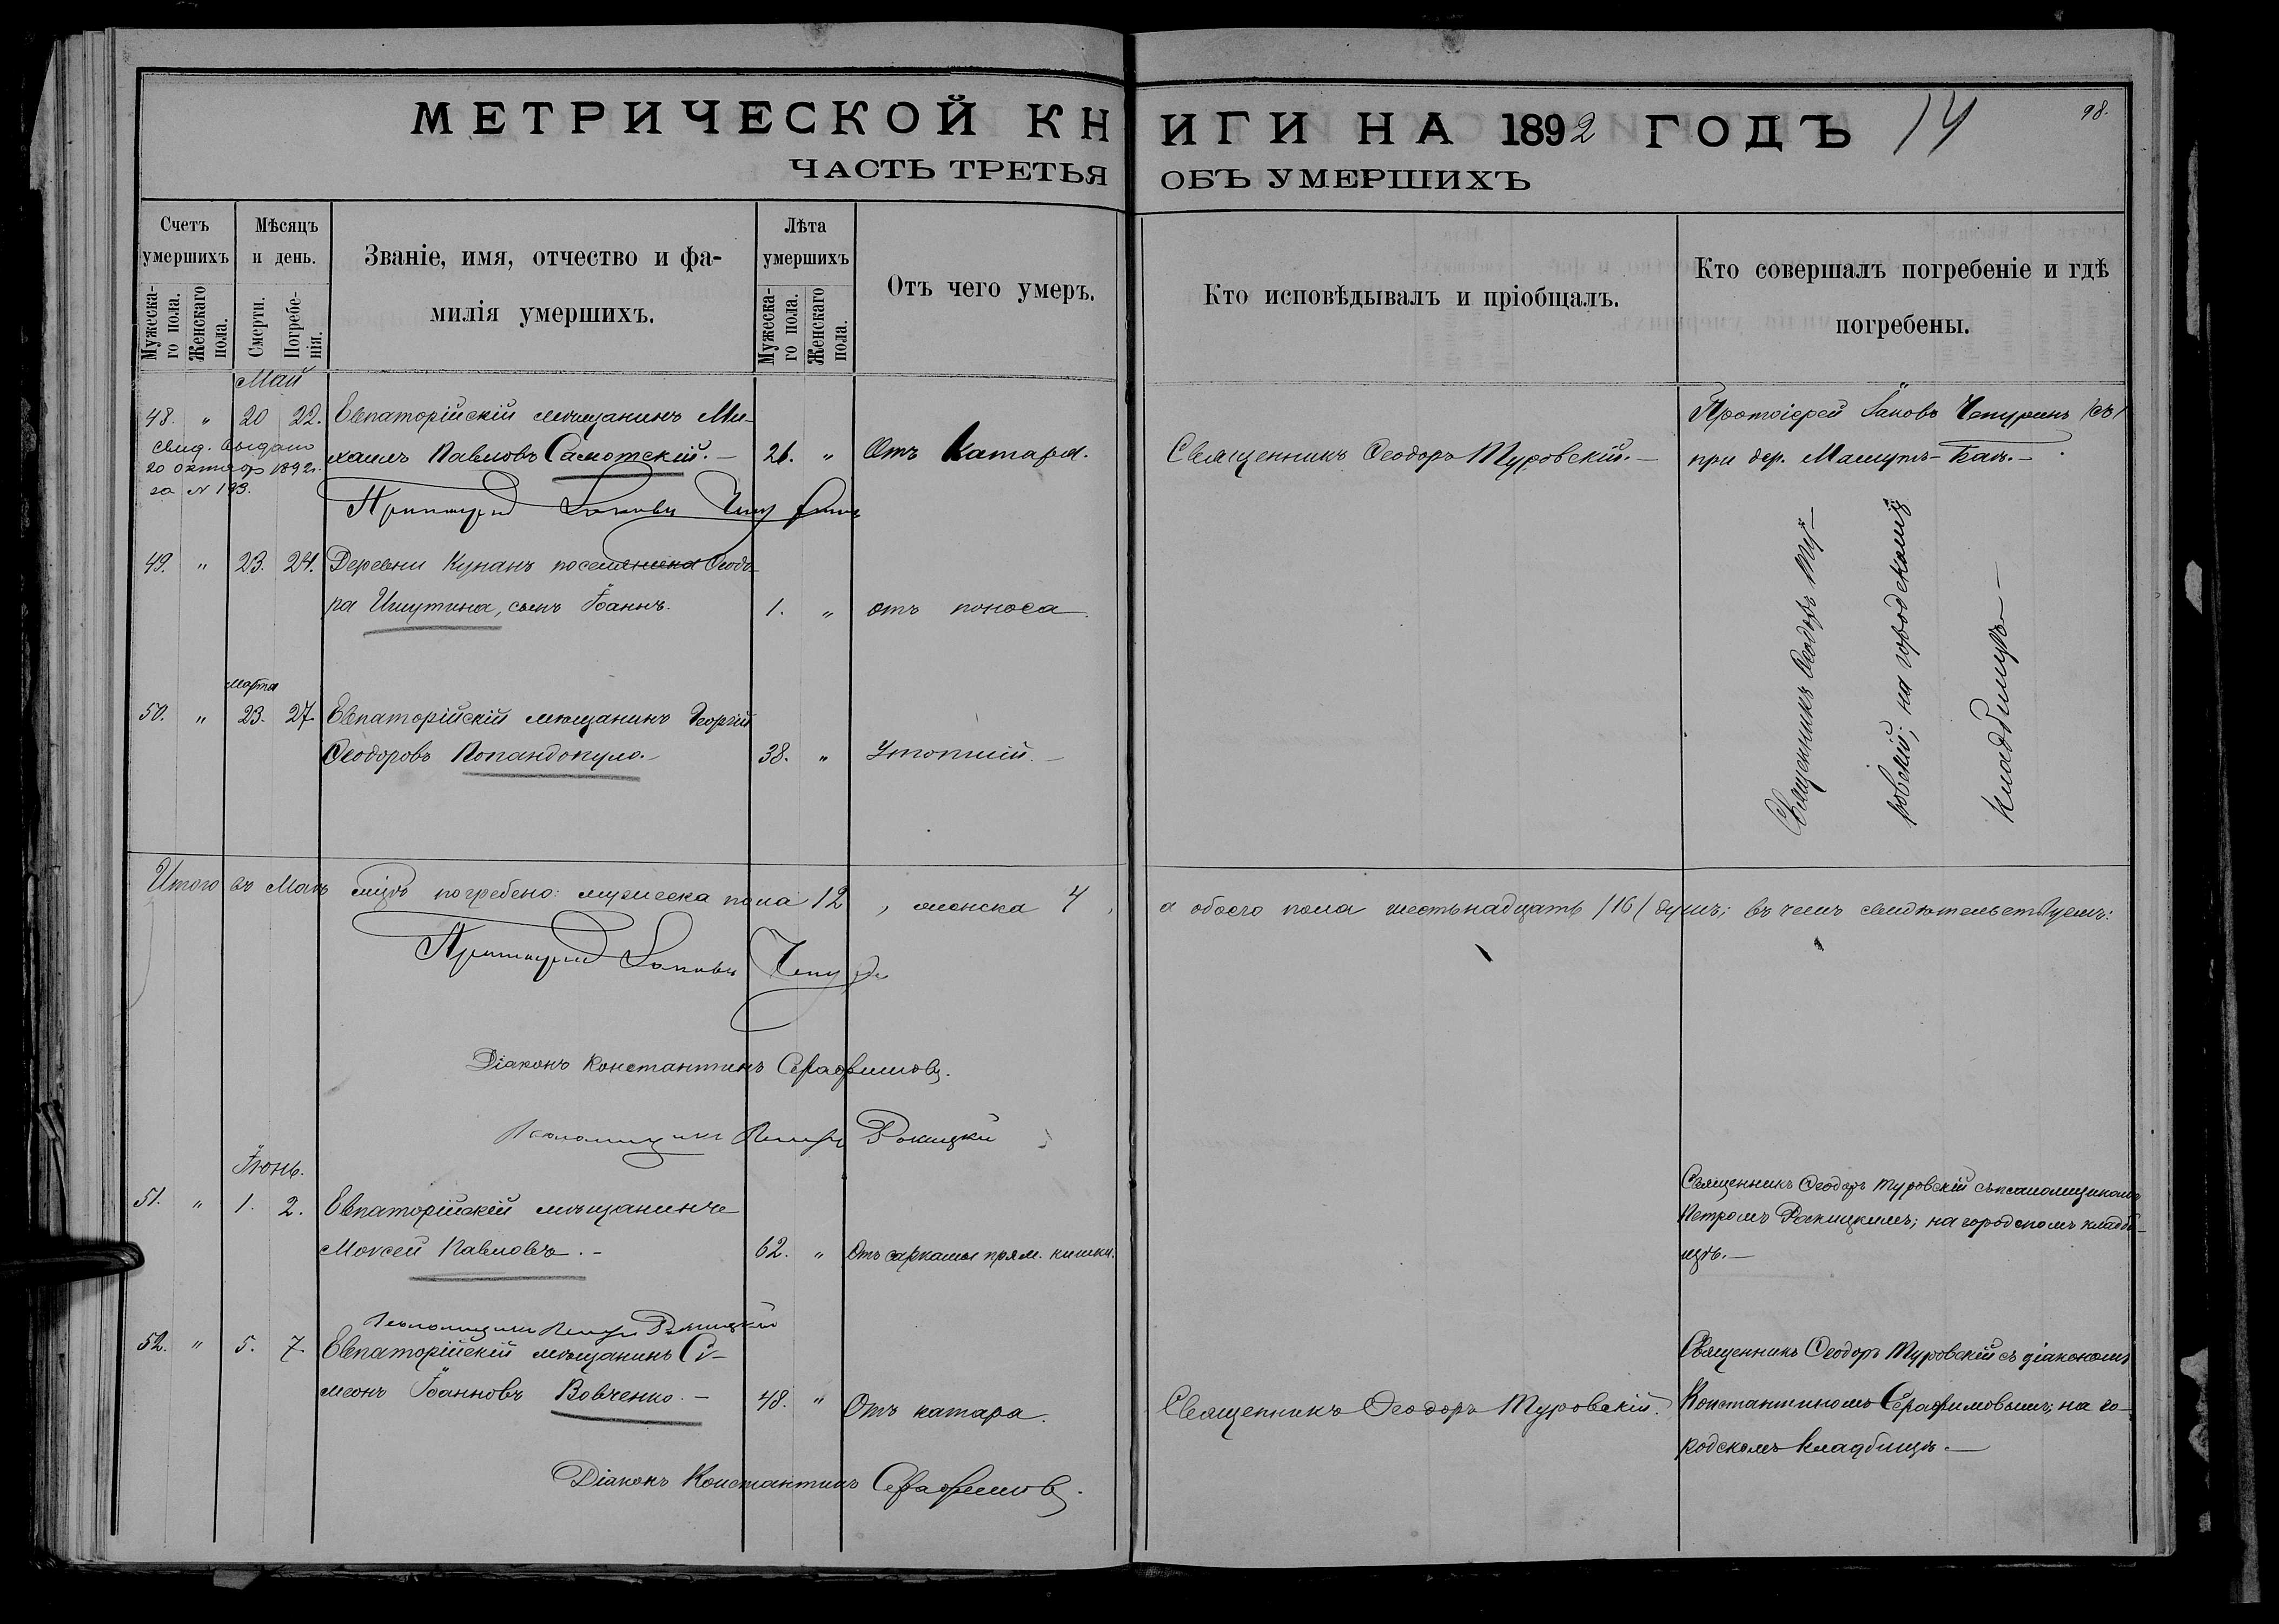 МЕТРИЧЕСКОЙ КНИГИ НА 1892 ГОДЪ 14 98.
ЧАСТЬ ТРЕТЬЯ ОБЪ УМЕРШИХЪ
Счетъ умершихъ
Мужескаго пола.
Женскаго пола.
Мѣсяцъ и день.
Смерти.
Погребенія.
Званіе, имя, отчество и фамилія умершихъ.
Лѣта умершихъ
Мужескаго пола.
Женскаго пола.
Отъ чего умеръ.
Кто исповѣдывалъ и пріобщалъ.
Кто совершалъ погребеніе и гдѣ погребены.
Май
48. " 20 22. Евпаторійскій мѣщанинъ Ми-
хаилъ Павловъ Самотскій. — 26. " Отъ катара.
Свид. выдано
20 октябр 1892 г.
за № 193.
Священникъ Ѳеодоръ Туровскій. —
Протоіерей Іаковъ Чепуринъ
при дер. — Бай. —
Протоіерей Іаковъ Чепуринъ
49. " 23. 24. Деревни Кунанъ поселянина Ѳеодо-
ра Ишутина, сынъ Іоаннъ. 1. " отъ поноса.
Священникъ Ѳеодоръ Ту-
ровскій; на городскомъ
кладбищѣ —
марта
50. " 23. 27. Евпаторійскій мѣщанинъ Георгій
Ѳеодоровъ Попандопуло. — 38. " Утопшій. —
Итого въ Маѣ мцѣ погребено: мужеска пола 12, женска 4, а обоего пола шестьнадцать /16/ душъ; въ чемъ свидѣтельствуемъ:
Протоіерей Іаковъ Чепурин
Діаконъ Константинъ Серафимовъ.
Псаломщикъ Петръ Рокицкій
Іюнь.
51. " 1. 2. Евпаторійскій мѣщанинъ
Моисей Павловъ. — 62. " Отъ саркомы прям. кишки.
Священникъ Ѳеодоръ Туровскій съ псаломщикомъ
Петромъ Рокицкимъ; на городскомъ кладби-
щѣ. —
Псаломщикъ Петръ Рокицкій
52. " 5. 7. Евпаторійскій мѣщанинъ Сѵ-
меонъ Іоанновъ Вовченко. — 48. " Отъ катара.
Священникъ Ѳеодоръ Туровскій.
Священникъ Ѳеодоръ Туровскій съ діакономъ
Константиномъ Серафимовымъ; на го-
родскомъ кладбищѣ. —
Діаконъ Константинъ Серафимовъ.